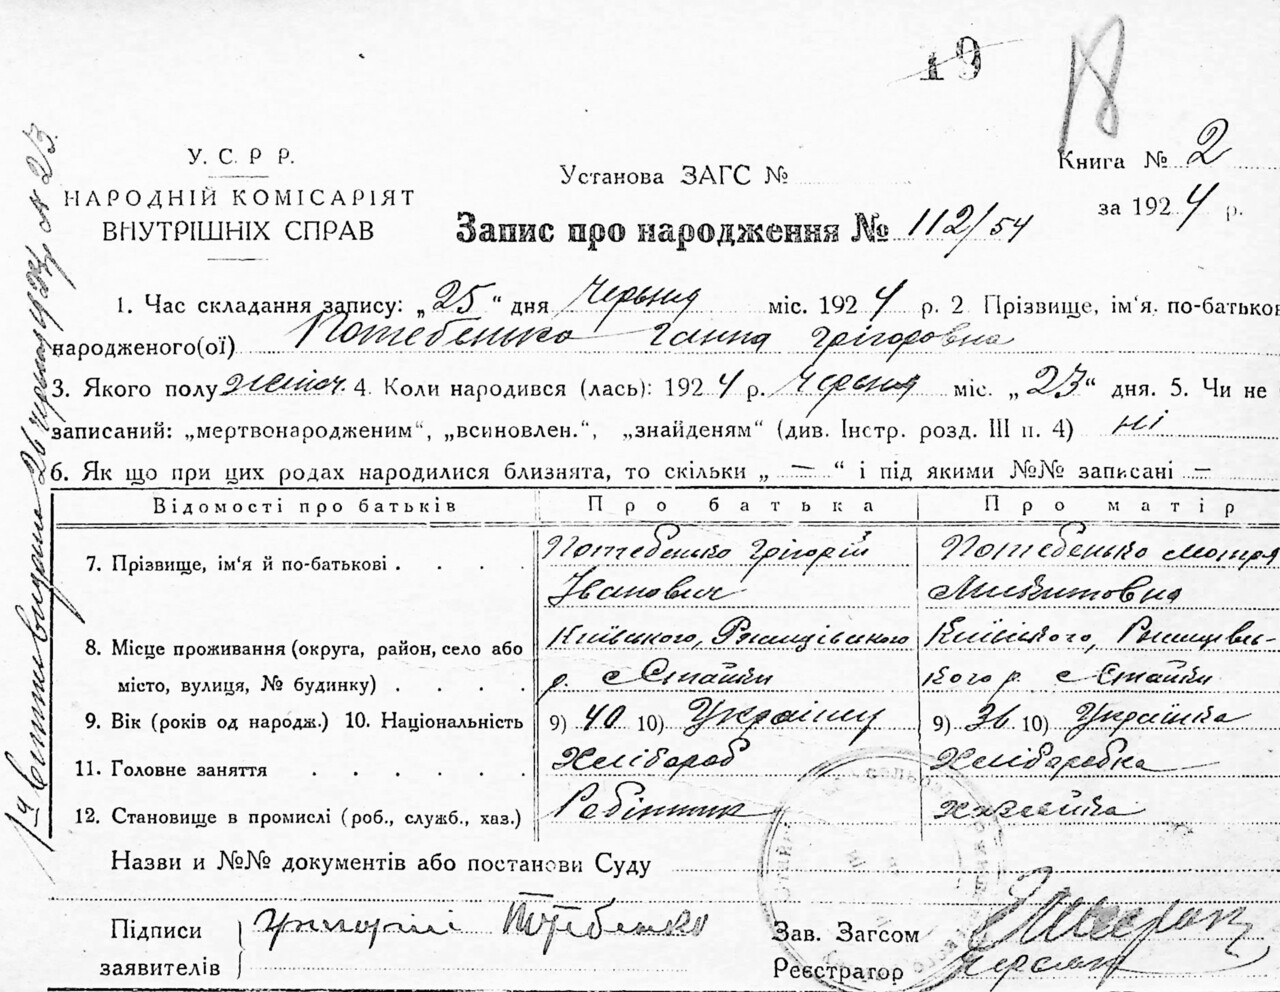 19
18
У. С. Р Р.
НАРОДНІЙ КОМІСАРІЯТ
ВНУТРІШНІХ СПРАВ
Установа ЗАГС №
Книга № 2
за 1924 р.
Запис про народження № 112/54
1. Час складання запису: „25“ дня Червня міс. 1924 р. 2 Прізвище, ім'я. по-батьков
народженого(ої) Потебенько Ганна Грігоровна
3. Якого полу жіноч. 4. Коли народився (лась): 1924 р. Червня міс. „23“ дня. 5. Чи не
записаний: „мертвонародженим“, „всиновлен.“, „знайденям“ (див. Інстр. розд. III п. 4) ні
6. Як що при цих родах народилися близнята, то скільки „ — “ і під якими №№ записані —
Відомості про батьків Про батька Про матір
7. Прізвище, ім'я й по-батькові . . . . Потебенько Грігорій Потебенько Мотря
Іванович Микитовна
8. Місце проживання (округа, район, село або Київського, Ржищівського Київського, Ржищевсь-
місто, вулиця, № будинку) . . . . р. с Стайки кого р. с Стайки
9. Вік (років од народж.) 10. Національність 9) 40 10) Українец 9) 36 10) Українка
11. Головне заняття . . . . . . Хлібароб Хлібаробка
12. Становище в промислі (роб., служб., хаз.) Робітник хазяйка
Назви и №№ документів або постанови Суду
Підписи
заявителів
Григорій Потебенко
Зав. Загсом
Реєстратор